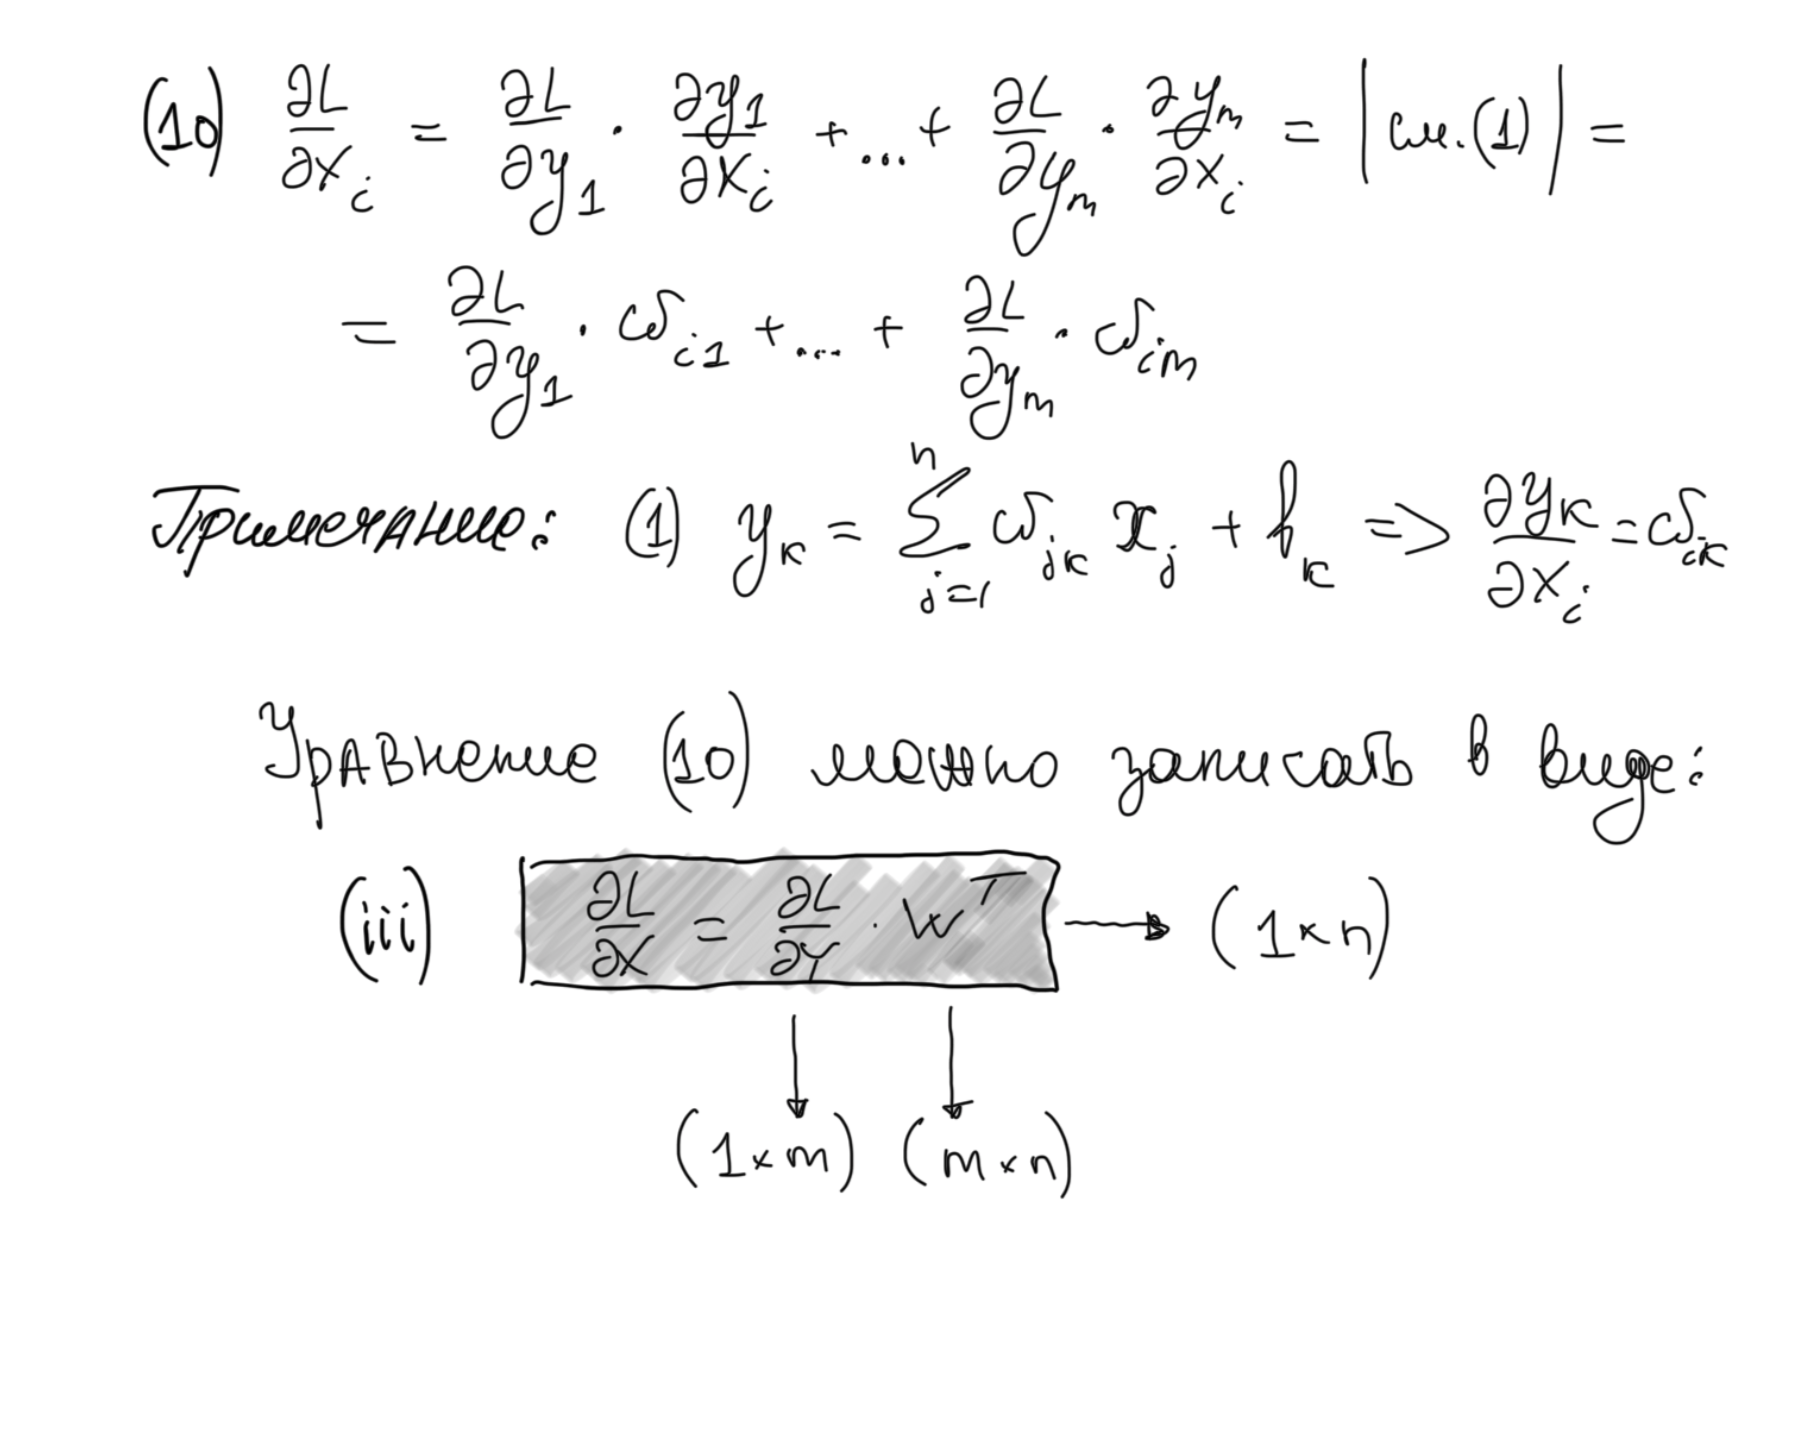 (10) ∂L/∂x_i = ∂L/∂y_1 · ∂y_1/∂x_i + ... + ∂L/∂y_m · ∂y_m/∂x_i = | см. (1) | =
= ∂L/∂y_1 · ω_i1 + ... + ∂L/∂y_m · ω_im
Примечание: (1) y_k = ∑_{j=1}^{n} ω_jk x_j + b_k => ∂y_k/∂x_i = ω_ik
Уравнение (10) можно записать в виде:
(iii) ∂L/∂X = ∂L/∂Y · W^T → (1×n)
(1×m) (m×n)